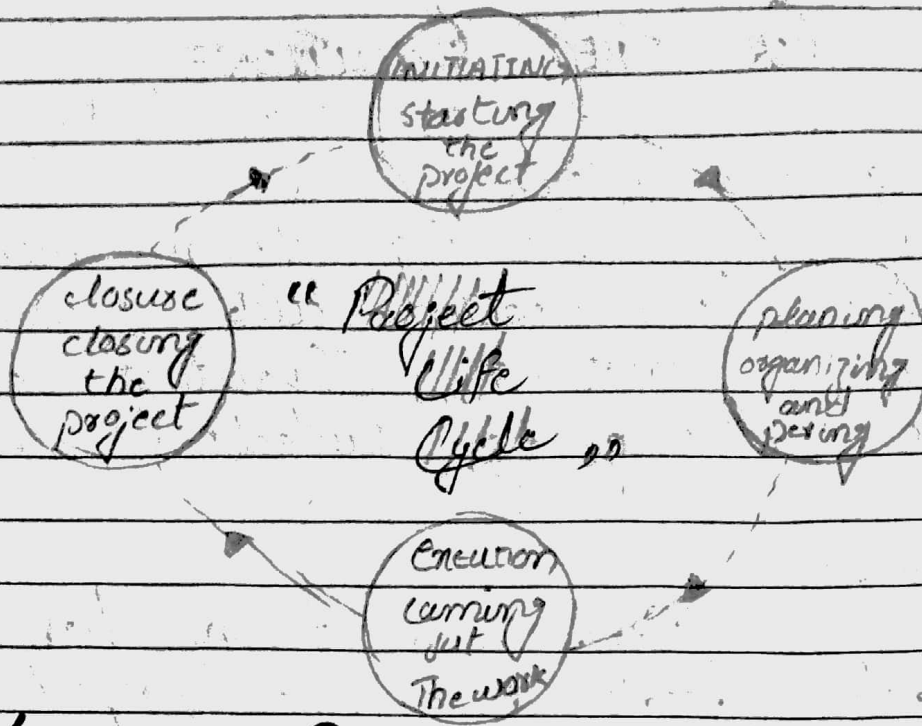 INITIATING
starting
the
project
closure
closing
the
project
" Project
Life
Cycle "
planing
organizing
and
Execution
carring
out
The work